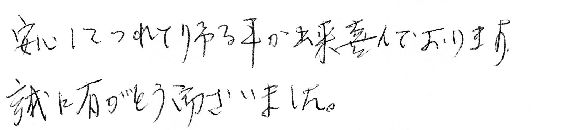 安心してつれてり帰る事が出来喜んでおります
誠に有がとう御ざいました。